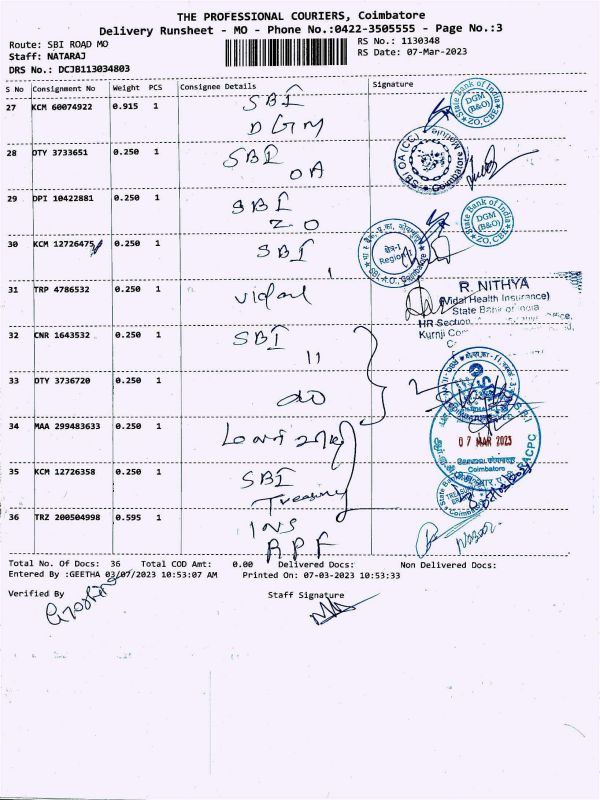 THE PROFESSIONAL COURIERS, Coimbatore
Delivery Runsheet - MO - Phone No.:0422-3505555 - Page No.:3
Route: SBI ROAD MO
RS No.: 1130348
Staff: NATARAJ
RS Date: 07-Mar-2023
DRS No.: DCJB113034803
S No Consignment No Weight PCS Consignee Details Signature
27 KCM 60074922 0.915 1 SBI
DGM
State Bank of India
DGM
(B&O)
ZO, CBE
28 DTY 3733651 0.250 1 SBI
OA
SBI OA (CC)
Coimbatore
29 DPI 10422881 0.250 1 SBI
ZO
State Bank of India
DGM
(B&O)
ZO, CBE
30 KCM 12726475 0.250 1 SBI
1
क्षेत्र-I
Region-I
SBI, A.O., Coimbatore
31 TRP 4786532 0.250 1 Vidal
R. NITHYA
(Vidal Health Insurance)
State Bank of India
HR Section,
Kurnji
32 CNR 1643532 0.250 1 SBI
11
33 DTY 3736720 0.250 1 do
34 MAA 299483633 0.250 1
07 MAR 2023
RACPC
Coimbatore
35 KCM 12726358 0.250 1 SBI
Treasury
36 TRZ 200504998 0.595 1 INS
APF
Total No. Of Docs: 36 Total COD Amt: 0.00 Delivered Docs: Non Delivered Docs:
Entered By :GEETHA 03/07/2023 10:53:07 AM Printed On: 07-03-2023 10:53:33
Verified By Staff Signature